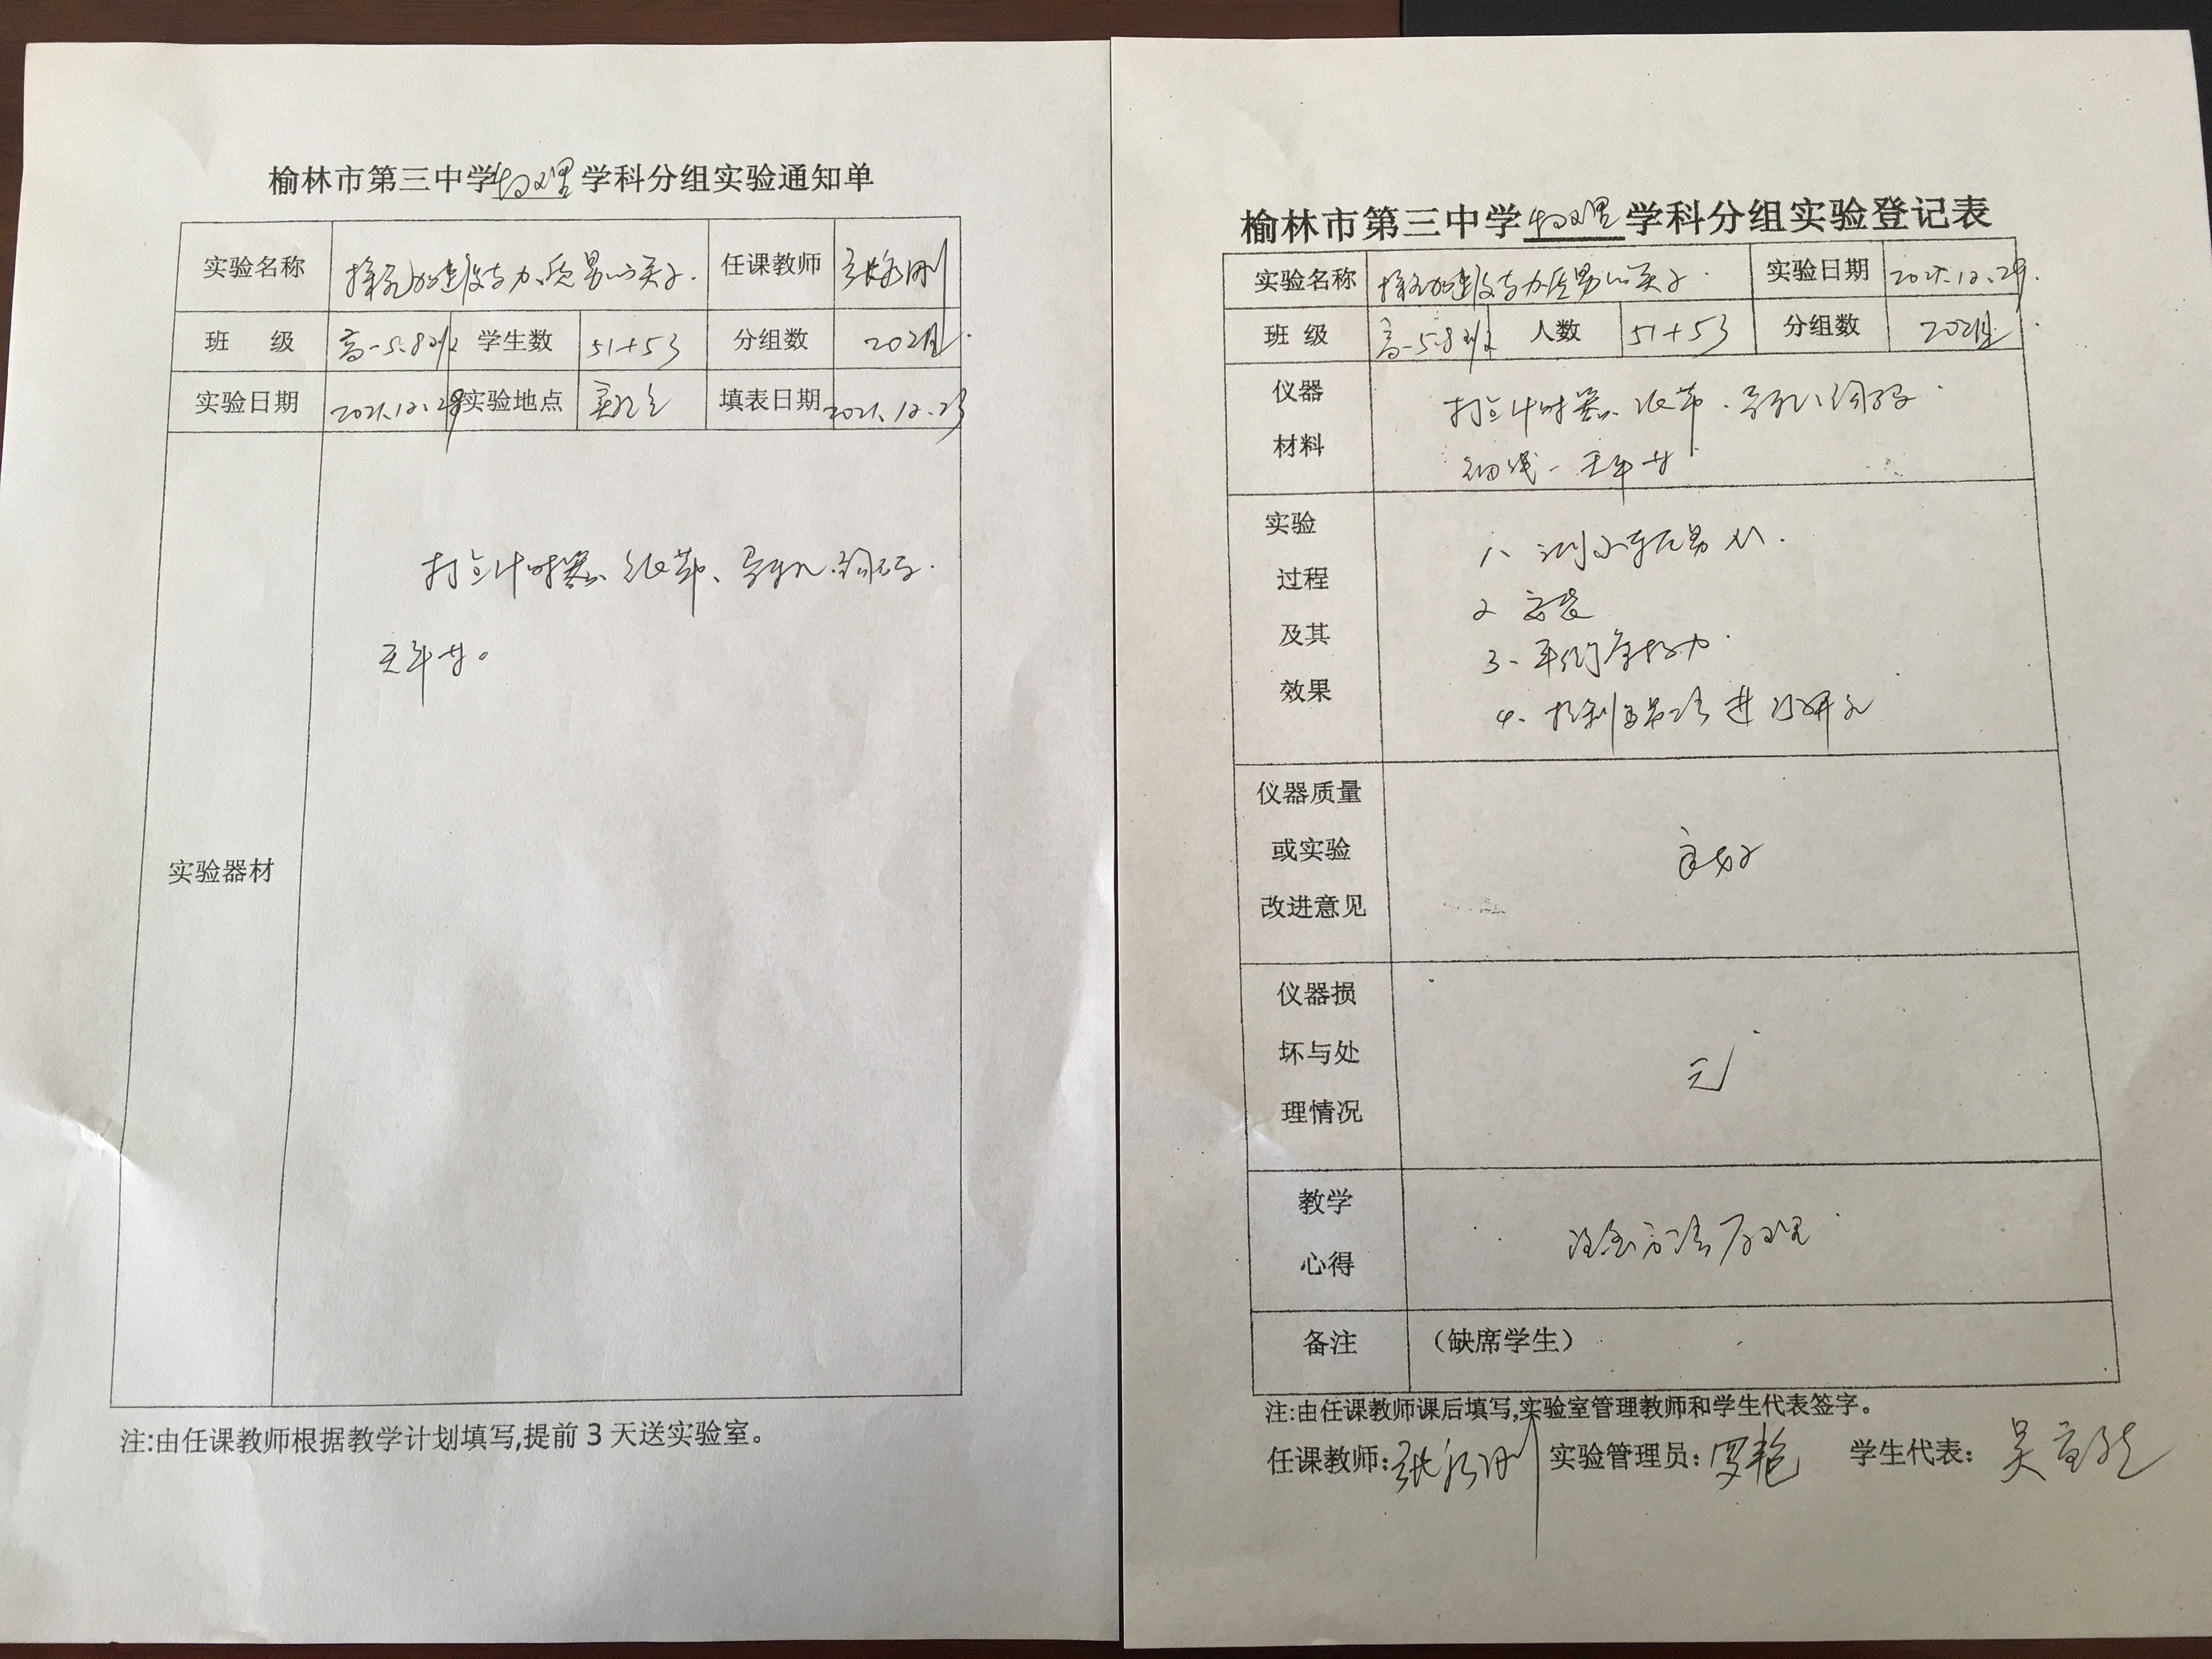 榆林市第三中学物理学科分组实验通知单
实验名称 探究加速度与力、质量的关系. 任课教师
班 级 高一5.8班 学生数 51+53 分组数 20组
实验日期 2021.12.29 实验地点 实验室 填表日期 2021.12.23
实验器材
打点计时器、纸带、导轨、钩码.
天平等。
注:由任课教师根据教学计划填写,提前3天送实验室。
榆林市第三中学物理学科分组实验登记表
实验名称 探究加速度与力质量的关系. 实验日期 2021.12.29.
班 级 高一5.8班 人数 51+53 分组数 20组
仪器
材料
打点计时器、纸带、导轨、钩码
细线、天平等
实验
过程
及其
效果
1、测小车质量M.
2 安装
3、平衡摩擦力.
4、控制变量法进行研究
仪器质量
或实验
改进意见
良好
仪器损
坏与处
理情况
无
教学
心得
方法原理
备注 （缺席学生）
注:由任课教师课后填写,实验室管理教师和学生代表签字。
任课教师: 实验管理员: 罗艳 学生代表: 吴